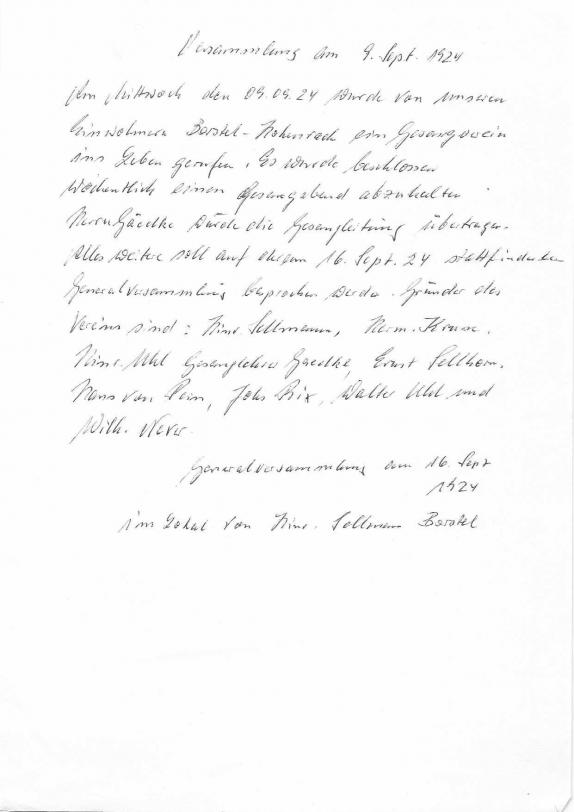 Versammlung am 9. Sept. 1924
Am Mittwoch den 09.09.24 wurde von unseren
Einwohnern Borstel-Hohenraden ein Gesangverein
ins Leben gerufen. Es wurde beschlossen
wöchentlich einen Gesangabend abzuhalten
Herrn Gaedke wurde die Gesangleitung übertragen.
Alles weitere soll auf der am 16. Sept. 24 stattfindenden
Generalversammlung besprochen werden. Gründer des
Vereins sind: Hinr. Sellmann, Herm. Kruse,
Hinr. Uhl Gesanglehrer Gaedke, Ernst Sellhorn,
Hans von Pein, Johs Rix, Walter Uhl und
Wilh.
Generalversammlung am 16. Sept
1924
im Lokal von Hinr. Sellmann Borstel